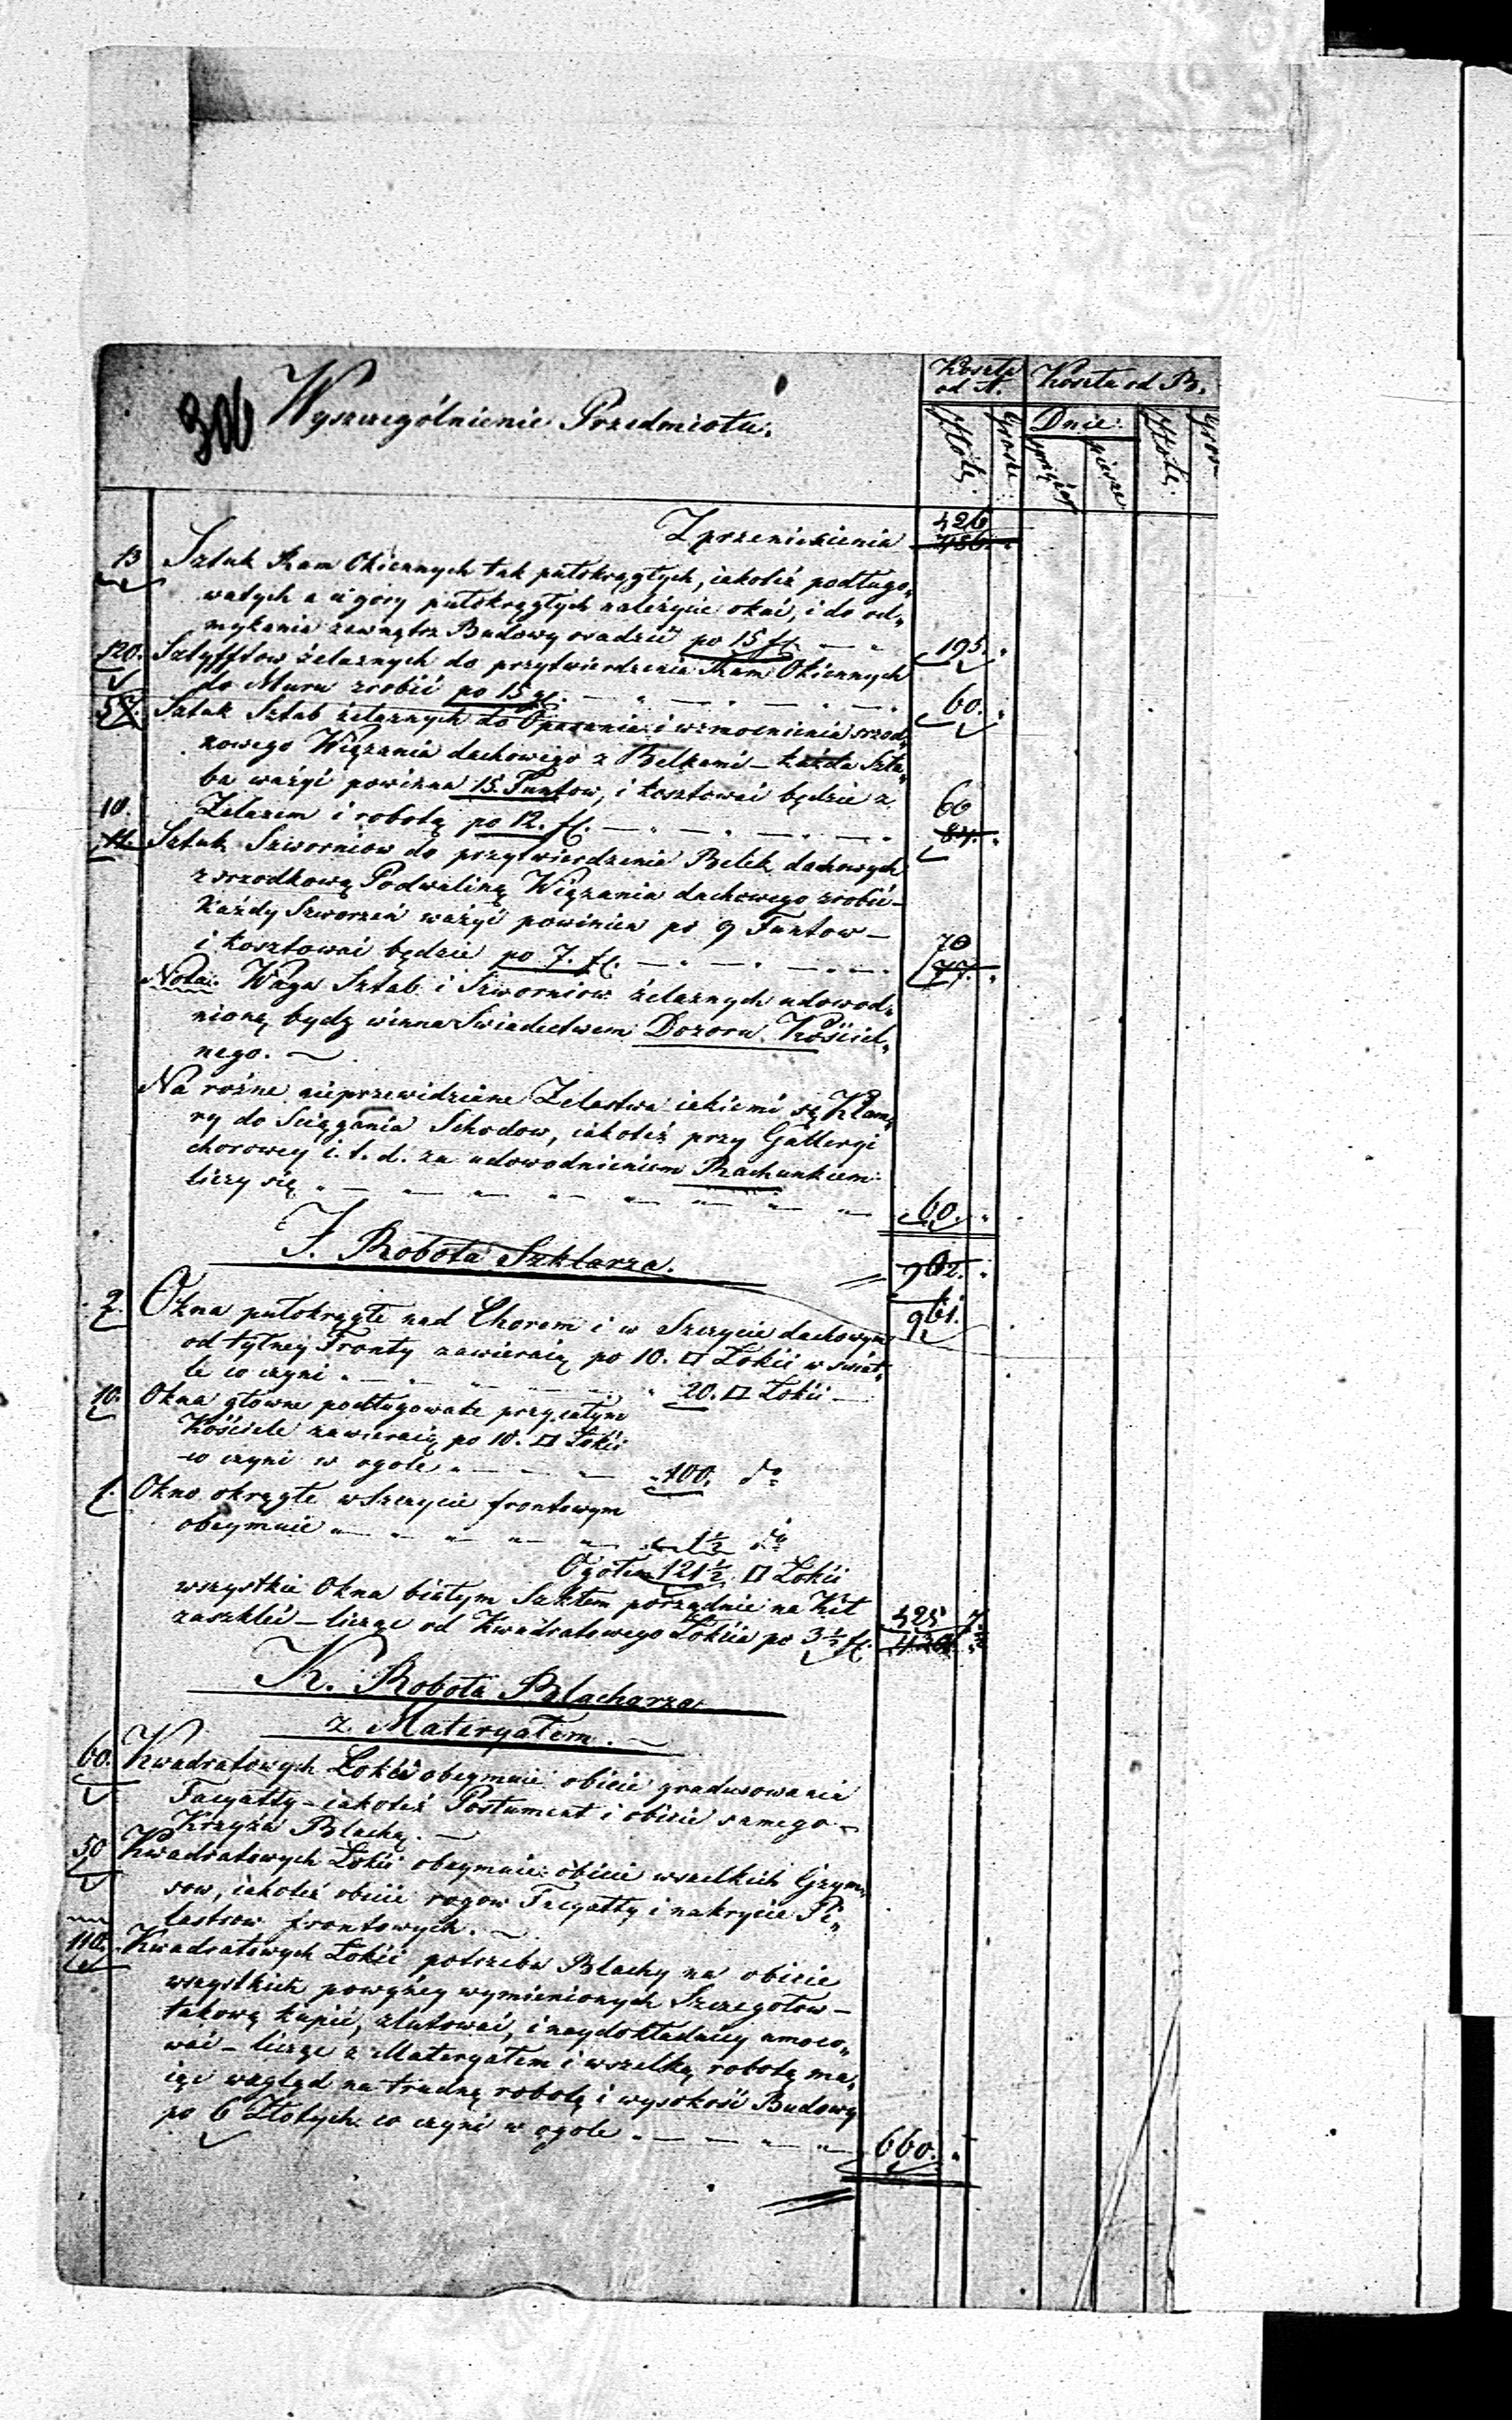 306 Wyszczególnienie Przedmiotu.
Koszta od A.
Koszta od B.
Złote. Grosze Dnie: piesze Złote. Grosz
Z przeniesienia 426 486.
13 Sztuk Ram Okiennych tak pułokrągłych, iakoteż podługo„
watych a u gory pułokrągłych należycie okuć, i do od„
mykania zewnątrz Budowy osadzić po 15 fl. 195.
120. Sztyfftow żelaznych do przytwierdzenia Ram Okiennych
do Muru zrobić po 15 gl. 60.
5 Sztuk Sztab żelaznych do Opasania i wzmocnienia srzod„
kowego Wiązania dachowego z Belkami – każda Szta„
ba ważyć powinna 15 Funtow, i kosztować będzie z
Zelazem i robotą po 12. fl. 60 84.
10. 11. Sztuk Szworniow do przytwierdzenia Belek dachowych
z srzodkową Podwaliną Wiązania dachowego zrobić –
Każdy Szworzeń ważyć powinien po 9 Funtow –
i kosztować będzie po 7. fl. 70 77.
Nota: Waga Sztab i Szworniow żelaznych udowod„
nioną bydz winna Swiadectwem Dozoru Kościel„
nego.
Na rożne nieprzewidziane Zelastwa iakiemi są Klam„
ry do Sciągania Schodow, iakoteż przy Galleryi
chorowey i. t. d. za udowodnieniem Rachunkiem
liczy się 60.
902.
961.
J. Robota Szklarza.
2. Okna pułokrągłe nad Chorem i w Szczycie dachowym
od tylney Fronty zawieraią po 10. □ Łokci w swiat„
le co czyni 20. □ Łokci
10. Okna głowne podługowate przy całym
Kościele zawieraią po 10. □ Łokci
co czyni w ogole 100. do
1. Okno okrągłe w Szczycie frontowym
obeymuie 1½ do
Ogołem 121½ □ Łokci
wszystkie Okna białym Szkłem porządnie na Kit
zaszklić – licząc od Kwadratowego Łokcia po 3½ fl. 425 7
K. Robota Blacharza
z Materyałem.
60. Kwadratowych Łokci obeymuie obicie gradusowania
Facyatty – iakoteż Postument i obicie samego
Krzyża Blachą.
50 Kwadratowych Łokci obeymuie obicie wszelkich Gzym„
sow, iakoteż obicie rogow Facyatty i nakrycie Pi„
lastrow frontowych.
110. Kwadratowych Łokci potrzeba Blachy na obicie
wszystkich powyżey wymienionych Szczegołow –
takową kupić, zlutować, i naydokładniey umoco„
wać – licząc z Materyałem i wszelką robotą ma„
iąc wzgląd na trudną robotę i wysokość Budowy
po 6 Złotych co czyni w ogole 660.